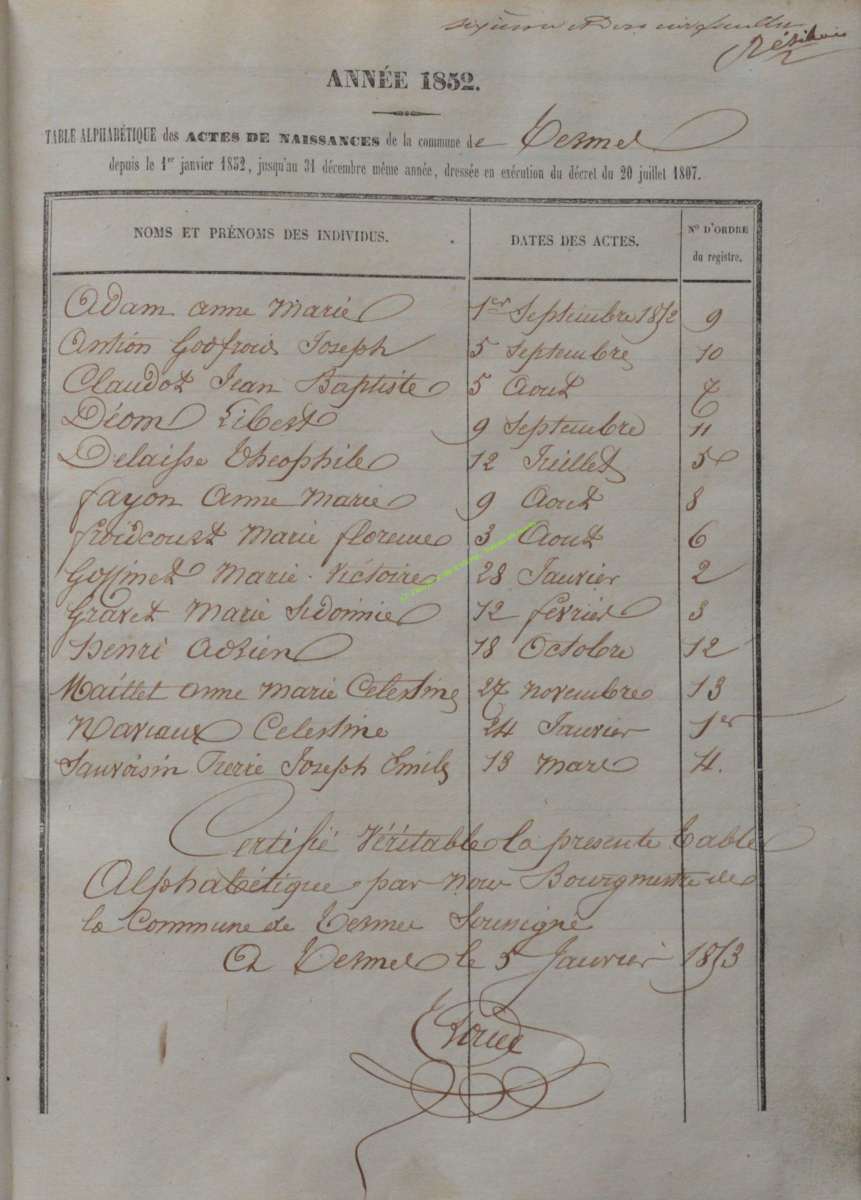 sixième et dernier feuillet
ANNÉE 1852.
TABLE ALPHABÉTIQUE des ACTES DE NAISSANCES de la commune de Termes
depuis le 1er janvier 1852, jusqu'au 31 décembre même année, dressée en exécution du décret du 20 juillet 1807.
NOMS ET PRÉNOMS DES INDIVIDUS. DATES DES ACTES. No D'ORDRE du registre.
Adam Anne Marie 1er Septembre 1852 9
Antion Godfroid Joseph 5 Septembre 10
Claudot Jean Baptiste 5 Aout 7
Déom Libert 9 Septembre 11
Delaisse Theophile 12 Juillet 5
fayon Anne Marie 9 Aout 8
froidcourt Marie florence 3 Aout 6
Goffinet Marie Victoire 28 Janvier 2
Gravet Marie Sidonnie 12 fevrier 3
Henri Adrien 18 Octobre 12
Maillet Anne Marie Celestine 27 novembre 13
Naviaux Celestine 24 Janvier 1er
Sauvoisin Pierre Joseph Emile 13 Mars 4.
Certifié Véritable la presente table
Alphabétique par nous Bourgmestre de
la Commune de Termes Soussigné
A Termes le 5 Janvier 1853